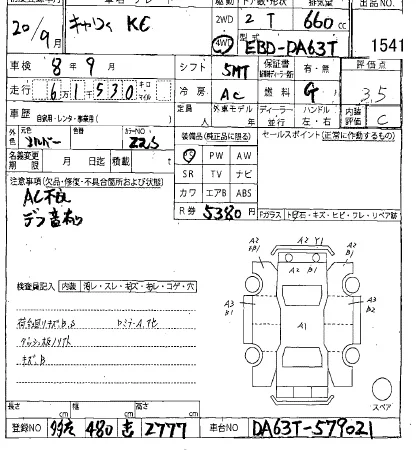 駆動 ドア数・形状 排気量 出品NO.
20/9月 キャリィ KC 2WD 2 T 660 cc
4WD 型式 EBD-DA63T 1541
車検 8年9月 シフト 5MT 保証書 有・無 評価点
走行 61530 キロ マイル 冷房 AC 燃料 G 3.5
車歴 自家用・レンタ・事業用( ) 定員 人 外車モデル ディーラー・並行 ハンドル 左・右 内装評価 C
外色 元色 シルバー カラーNO. Z2S 装備品(純正品に限る) セールスポイント(正常に作動するもの)
名義変更期限 月 日迄 積載 t PS PW AW
注意事項(欠品・修復・不具合箇所および状態) SR TV ナビ
AC不良 カワ エアB ABS
デフ音有り R券 5380円 Fガラス ト石・キズ・ヒビ・フレ・リペア跡
A2 A2 Y1 A2
B1 A2 B1
検査員記入 内装 汚レ・スレ・キズ・ネレ・コゲ・穴
A3 B1 A1 A3 B2
荷台回りキズB.S
キズ.B
スペア
長さ cm 幅 cm 高さ cm
登録NO 480 2777 車台NO DA63T-579021